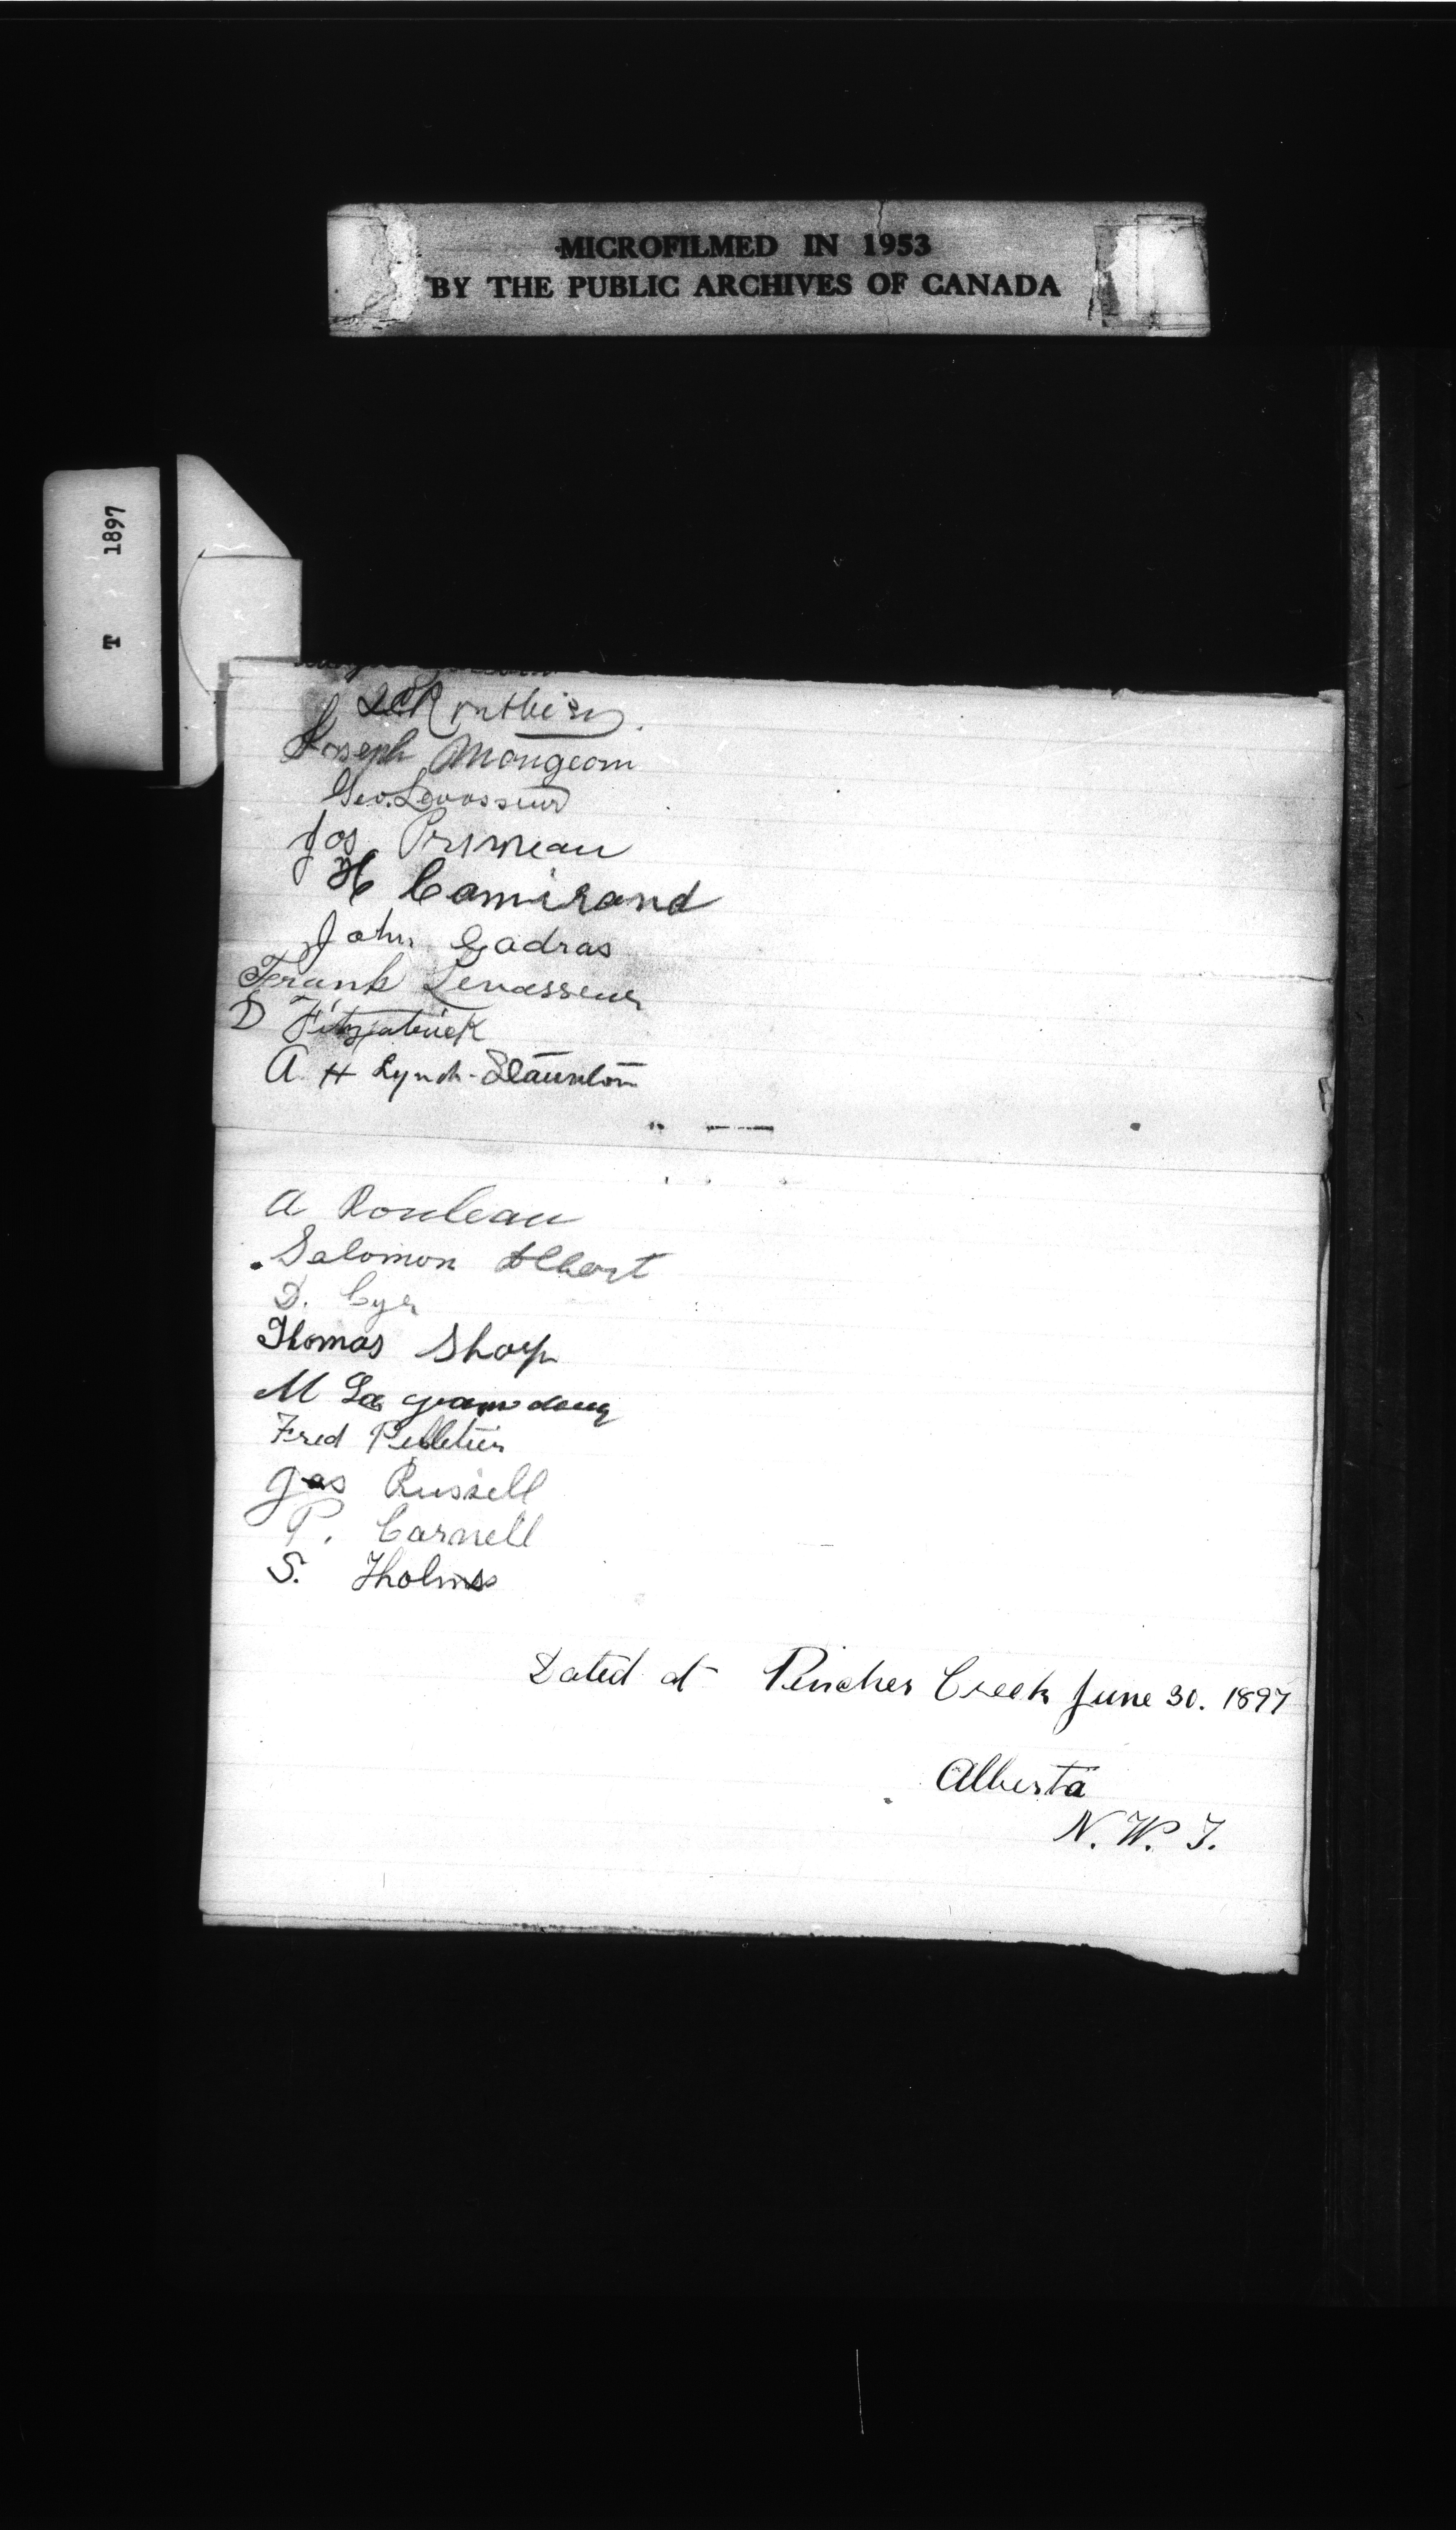 MICROFILMED IN 1953
BY THE PUBLIC ARCHIVES OF CANADA
T 1897
Routhier
Joseph Mongeom
Geo. Levasseur
Jos Primeau
H Camirand
John Gadras
Frank Levasseur
D Fitzpatrick
A H Lynch-Staunton
A Rouleau
Salomon Albert
D. Cyr
Thomas Sharp
M La
Fred Pelletier
Jas Russell
P. Carnell
S. Tholmss
Dated at Pincher Creek June 30. 1897
Alberta
N. W. T.